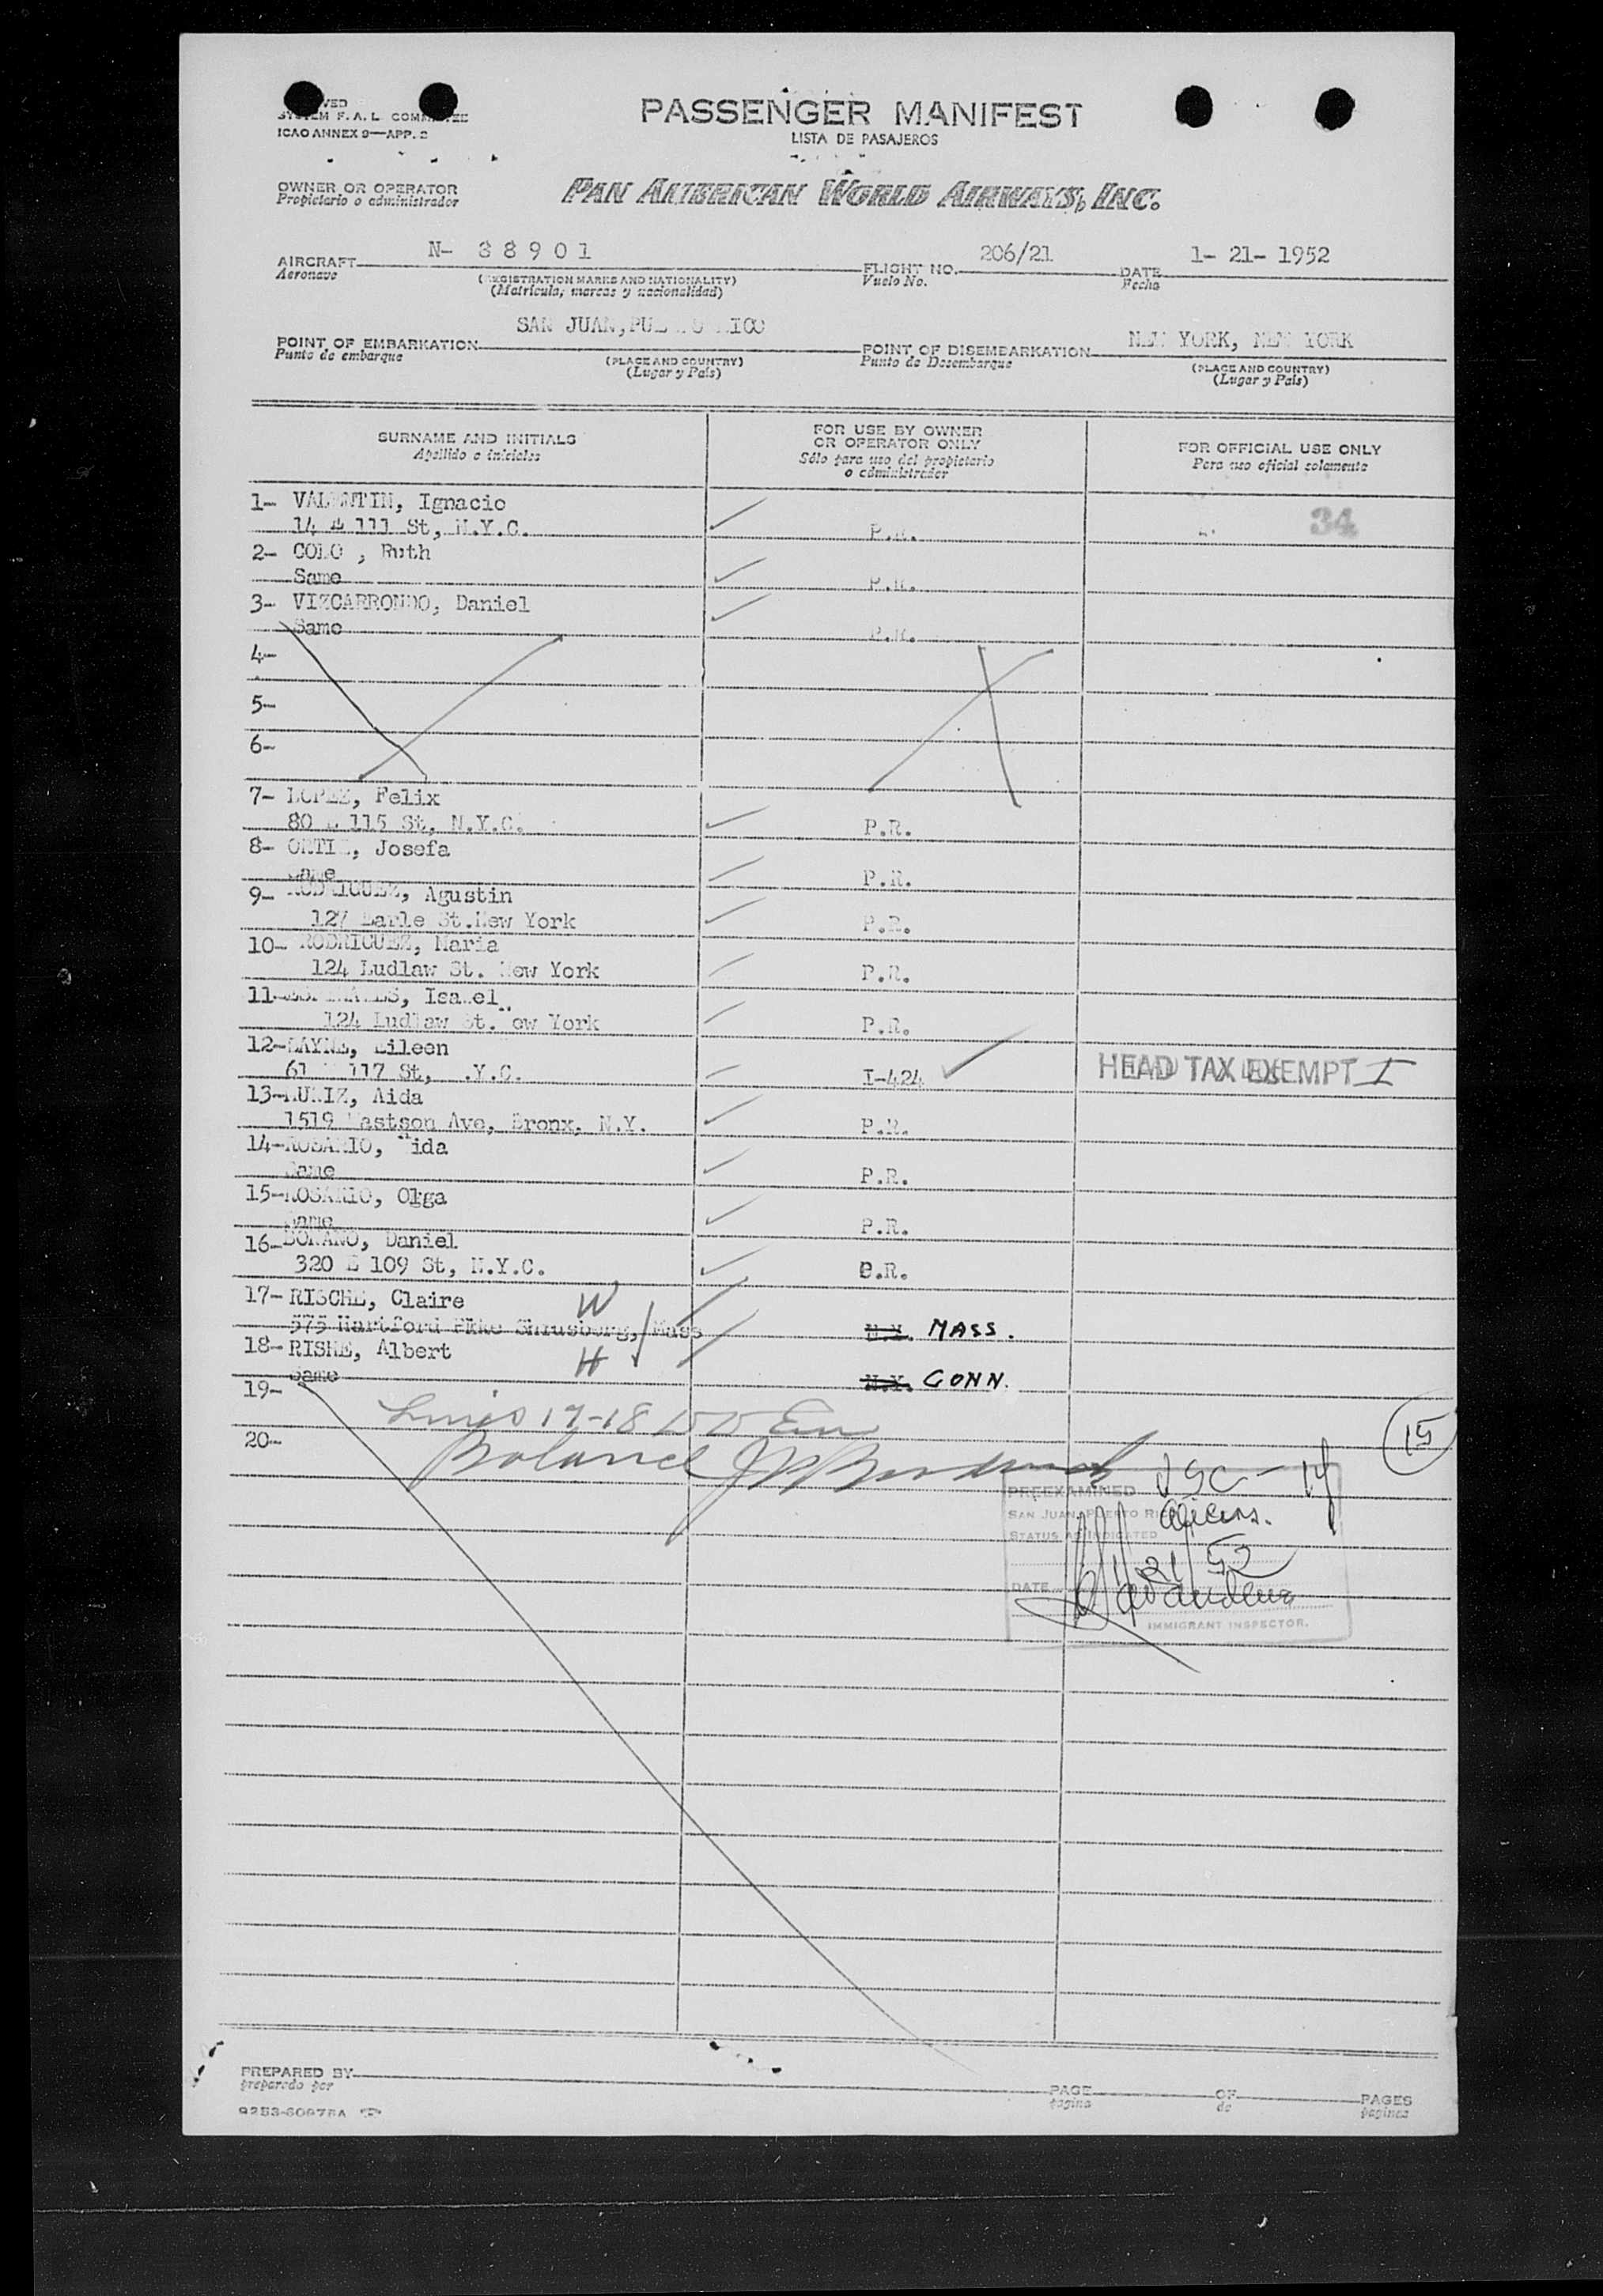 SYSTEM F. A. L. COMMITTEE
ICAO ANNEX 9—APP. 2
PASSENGER MANIFEST
LISTA DE PASAJEROS
OWNER OR OPERATOR
Propietario o administrador
PAN AMERICAN WORLD AIRWAYS, INC.
AIRCRAFT N- 38901
Aeronave
(REGISTRATION MARKS AND NATIONALITY)
(Matricula, marcas y nacionalidad)
FLIGHT NO. 206/21
Vuelo No.
DATE 1- 21- 1952
Fecha
POINT OF EMBARKATION SAN JUAN, PUERTO RICO
Punto de embarque
(PLACE AND COUNTRY)
(Lugar y País)
POINT OF DISEMBARKATION NEW YORK, NEW YORK
Punto de Desembarque
(PLACE AND COUNTRY)
(Lugar y País)
SURNAME AND INITIALS
Apellido e iniciales
FOR USE BY OWNER
OR OPERATOR ONLY
Sólo para uso del propietario
o administrador
FOR OFFICIAL USE ONLY
Para uso oficial solamente
1- VALENTIN, Ignacio
14 E 111 St, N.Y.C. P.R. 34
2- COLO , Ruth
Same P.R.
3- VIZCARRONDO, Daniel
Same P.R.
4-
5-
6-
7- LOPEZ, Felix
80 E 115 St, N.Y.C. P.R.
8- ORTIZ, Josefa
Same P.R.
9- RODRIGUEZ, Agustin
127 Earle St. New York P.R.
10- RODRIGUEZ, Maria
124 Ludlaw St. New York P.R.
11- Isabel
124 Ludlaw St. New York P.R.
12- Eileen
61 117 St, N.Y.C. I-424 HEAD TAX EXEMPT I
13- MUNIZ, Aida
1519 Ave, Bronx, N.Y. P.R.
14- ROSARIO, Aida
Same P.R.
15- ROSARIO, Olga
Same P.R.
16- Daniel
320 E 109 St, N.Y.C. P.R.
17- RISCHE, Claire W
575 Hartford Pike Shrusborg, Mass N.Y. MASS.
18- RISHE, Albert H
Same N.Y. CONN.
19-
Lines 17-18
20-
15
PREEXAMINED
SAN JUAN, PUERTO RICO
STATUS AS INDICATED
USC - 14
Aliens.
DATE 1/21/52
IMMIGRANT INSPECTOR.
PREPARED BY
preparado por
PAGE
pagina
OF
de
PAGES
paginas